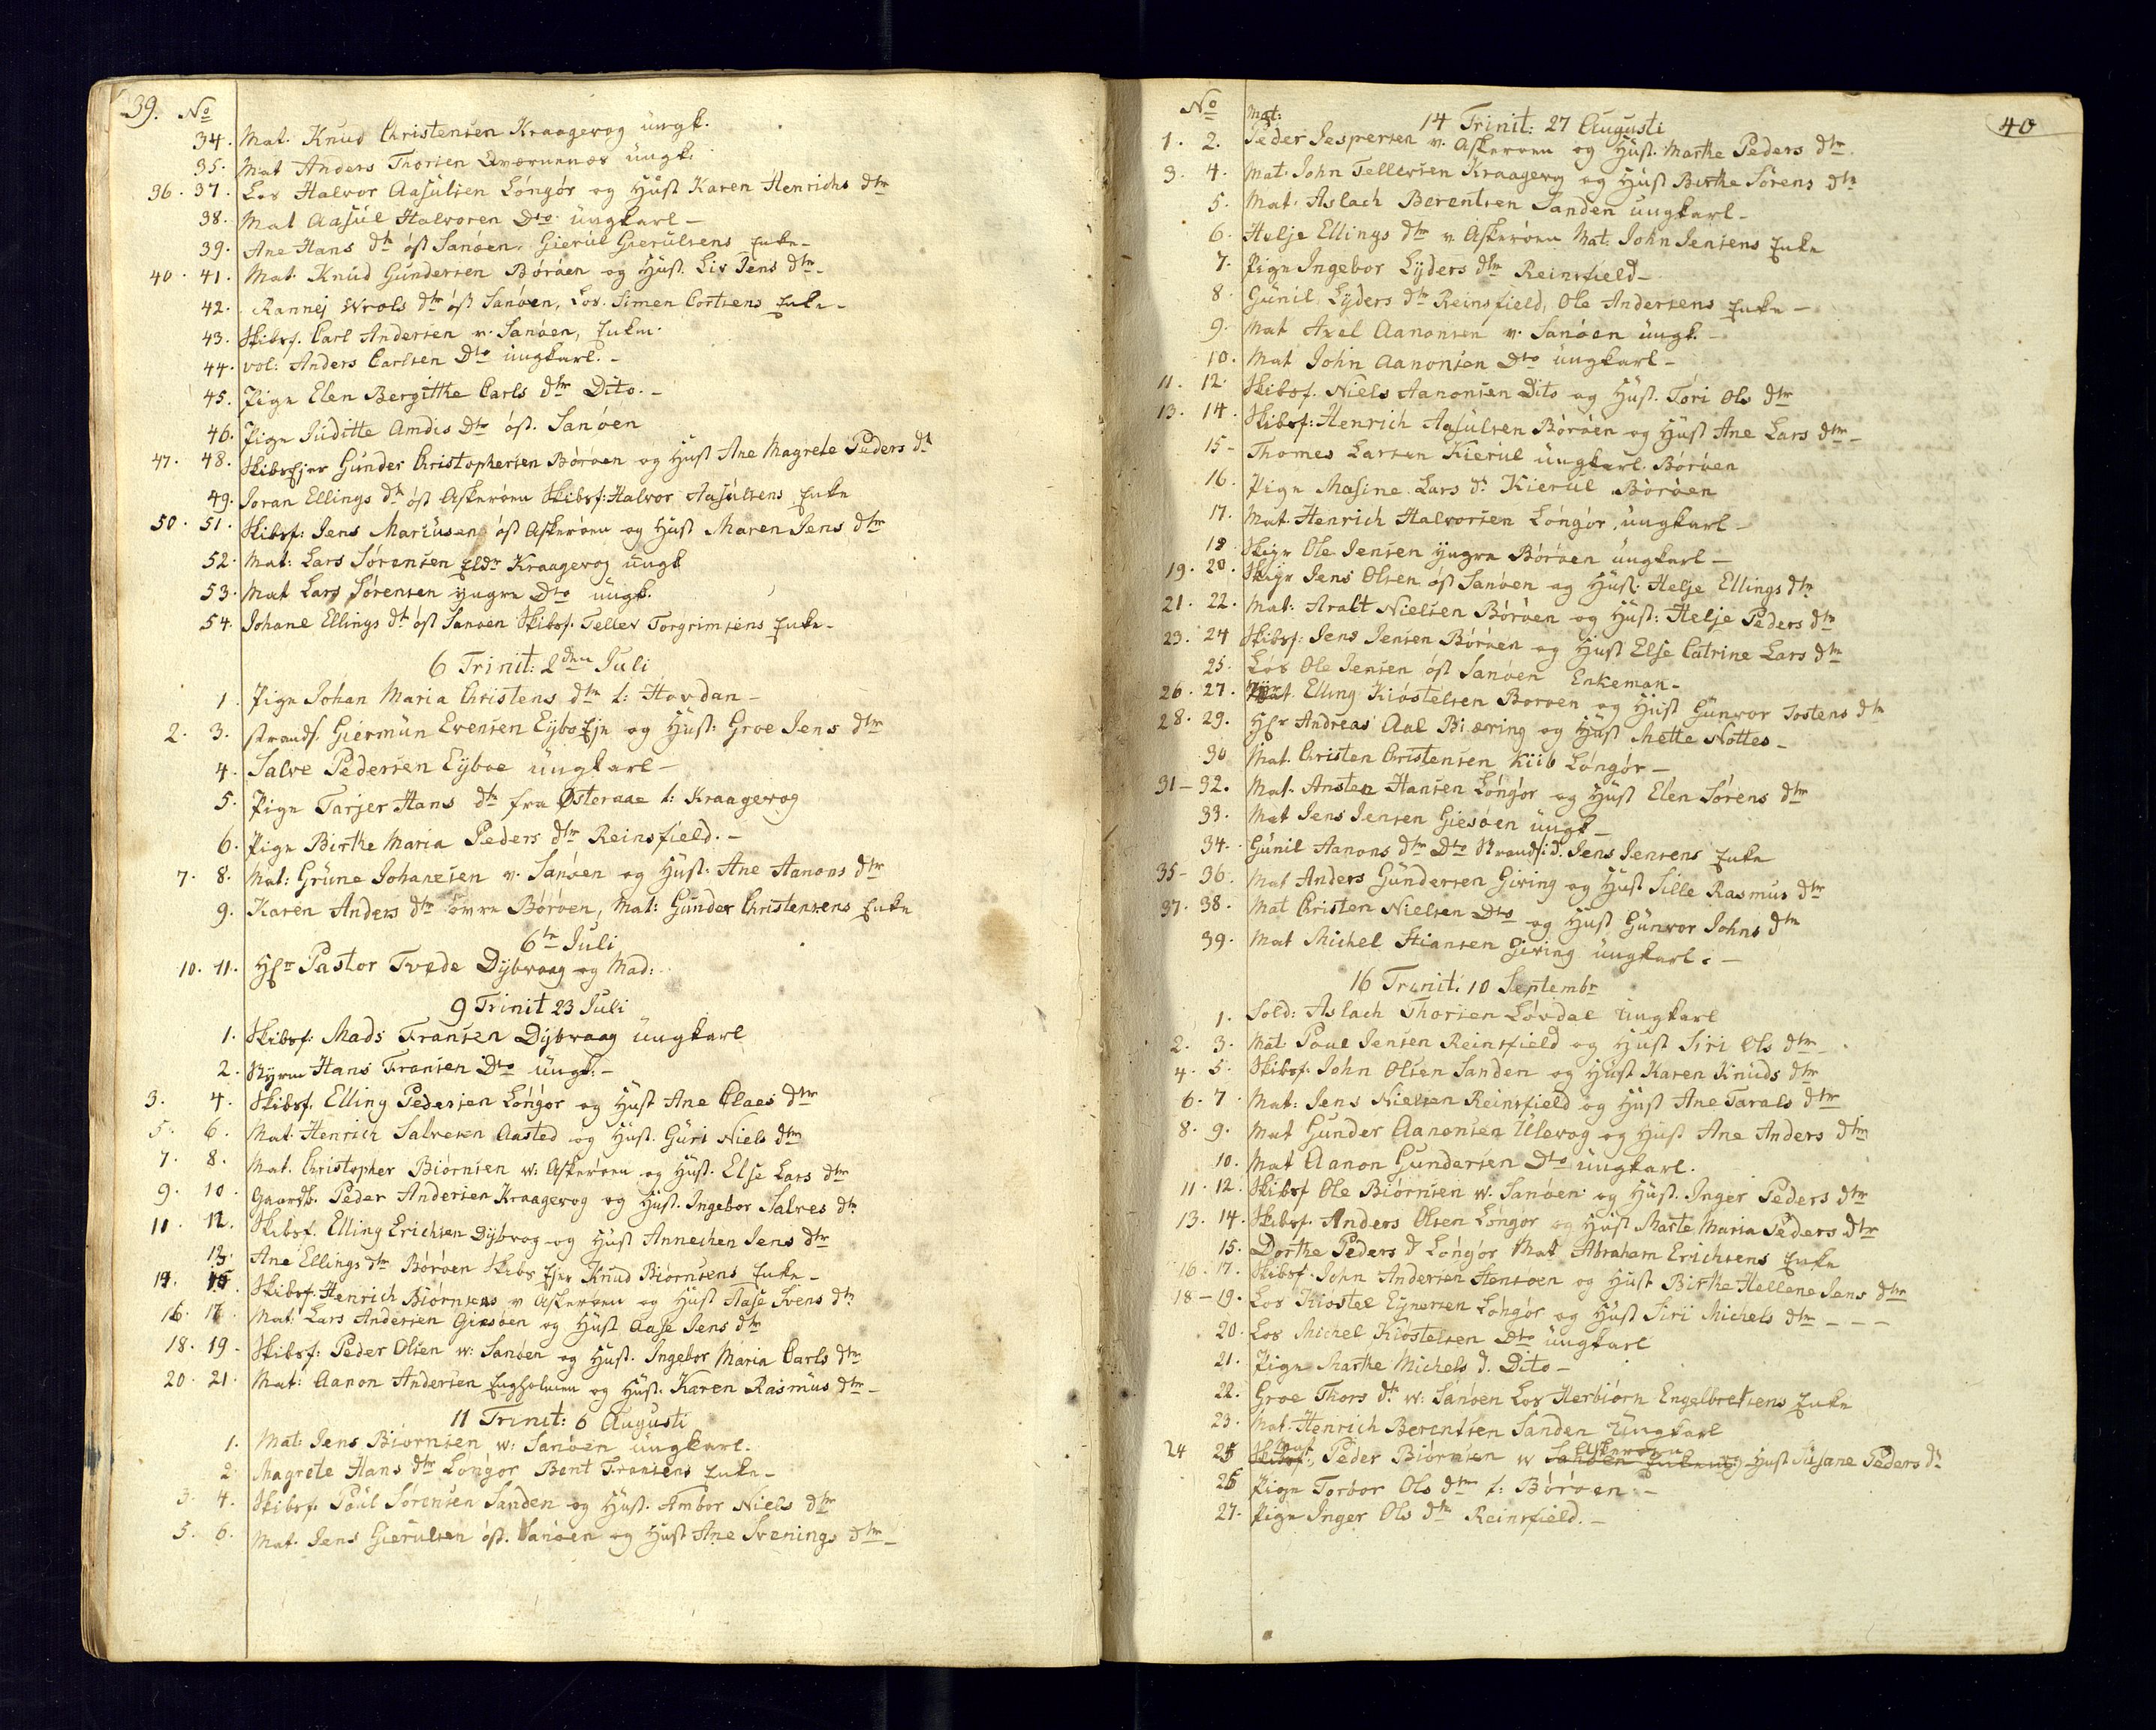 39. No
34. Mat. Knud Christensen Kraagevog ungk.
35. Mat Anders Thorsen Qværnenes ungk.
36. 37. Los Halvor Aasulsen Lóngór og Hust Karen Henrichs dtr
38. Mat Aasul Halvorsen Dto ungkarl –
39. Ane Hans dtr óst Sanóen. Gierul Gierulsens Enke –
40. 41. Mat. Knud Gundersen Bóróen og Hust. Liv Jens dtr –
42. Rannej Wrols dtr óst Sanóen, Los. Simen Cortsens Enke –
43. Skibsf. Carl Andersen v. Sanóen, Enkm.
44. vol: Anders Carlsen Dto ungkarl. –
45. Pige Elen Bergitthe Carls dtr Dito. –
46. Pige Juditte Amdis Dtr óst. Sanóen
47. 48. Skibsejer Gunder Christophersen Bóróen og Hust Ane Magrete Peders dt
49. Joran Ellings dtr óst Askeróen Skibsf: Halvor Aasulsens Enke
50. 51. Skibsf: Jens Marcusen óst Askeróen og Hust Maren Jens dtr
52. Mat: Lars Sørensen Eldr Kraagevog ungk
53. Mat Lars Sørensen yngre Dto ungk.
54. Johane Ellings dt óst Sanóen Skibsf. Tellev Torgrimsens Enke –
6 Trinit: 2den Juli
1. Pige Johan Maria Christens dtr l: Hovdan –
2. 3. strands. Giermun Evensen Eyboe Eje og Hust: Groe Jens dtr
4. Salve Pedersen Eyboe ungkarl –
5. Pige Tarjer Hans dtr fra Østeraae l: Kraagevog
6. Pige Birthe Maria Peders dtr Reinsfield. –
7. 8. Mat: Grune Johanesen v. Sanóen og Hust: Ane Aanons dtr
9. Karen Anders dtr ówre Bóróen, Mat: Gunder Christensens Enke
6te Juli
10. 11. Hr Pastor Tvede Dybvaag og Mad:
9 Trinit 23 Juli
1. Skibsf: Mads Fransen Dybvaag ungkarl
2. Styrm Hans Fransen Dto ungk: –
3. 4. Skibsf. Elling Pedersen Lóngór og Hust Ane Claes dtr
5. 6. Mat: Henrich Salvesen Aasted og Hust. Guri Niels dtr
7. 8. Mat. Christopher Biórnsen w: Askeróen og Hust. Else Lars dtr
9. 10. Gaardb. Peder Andersen Kraagevog og Hust. Ingebor Salves dtr
11. 12. Skibsf. Elling Erichsen Dybvog og Hust Annechen Jens dtr
13. Ane Ellings dtr Bóróen Skibs Ejer Knud Biórnsens Enke –
14. 15. Skibsf. Henrich Biórnsens v Askeróen og Hust Aase Svens dtr
16. 17. Mat: Lars Andersen Giesóen og Hust Aase Jens dtr
18. 19 – Skibsf: Peder Olsen w: Sanóen og Hust. Ingebor Maria Carls dtr
20. 21. Mat: Aanon Andersen Engholmen og Hust. Karen Rasmus dtr –
11 Trinit: 6 Augusti
1. Mat: Jens Biórnsen w: Sanóen ungkarl.
2. Magrete Hans dtr Lóngór Bent Fransens Enke –
3. 4. Skibsf. Poul Sørensen Sanden og Hust. Ambor Niels dtr
5. 6. Mat. Jens Gierulsen óst. Sanóen og Hust Ane Svenings dtr –
No 40
14 Trinit: 27 Augusti
1. 2. Mat: Peder Jespersen v. Askeróen og Hust. Marthe Peders dtr
3. 4. Mat: John Tellevsen Kraagevog og Hust Birthe Sórens dtr
5. Mat: Aslach Berentsen Sanden ungkarl –
6. Helje Ellings dtr v Askeróen Mat: John Jensens Enke
7. Pige Ingebor Lyders dtr Reinsfield –
8. Gunil Lyders dtr Reinsfield, Ole Andersens Enke –
9. Mat Axel Aanonsen v. Sanóen ungk. –
10. Mat John Aanonsen Dto ungkarl –
11. 12. Skibsf. Niels Aanonsen Dito og Hust. Tóri Ols dtr
13. 14. Skibsf: Henrich Aasulsen Bóróen og Hust Ane Lars dtr –
15 – Thomes Larsen Kierul ungkarl. Bóróen
16. Pige Masine Lars d. Kierul Bóróen
17. Mat. Henrich Halvorsen Lóngór, ungkarl –
18 Skipr Ole Jensen yngre Bóróen ungkarl –
19. 20. Skipr Jens Olsen óst Sanóen og Hust. Helje Ellings dtr
21. 22. Mat: Aralt Nielsen Bóróen og Hust: Helje Peders dtr
23. 24 Skibsf: Jens Jensen Bóróen og Hust Else Catrine Lars dtr
25. Los Ole Jensen óst Sanóen Enkeman –
26. 27. Elling Kióstelsen Boroen og Hust Gunvor Tostens dtr
28. 29. Hr Andreas Aal Biæring og Hust Mette Nottes –
30 Mat. Christen Christensen Kiib Lóngór –
31 – 32. Mat. Ansten Hansen Lóngór og Hust Elen Sórens dtr
33. Mat Jens Jensen Giesóen ungk –
34. Gunil Aanons dtr Dto Strands: d. Jens Jensens Enke
35 – 36. Mat Anders Gundersen Giving og Hust Sille Rasmus dtr
37. 38. Mat Christen Nielsen Dto og Hust Gunvor Johns dtr
39. Mat Michel Stiansen Giving ungkarl. –
16 Trinit: 10 Septembr
1. Sold: Aslach Thorsen Lóvdal Ungkarl
2. 3. Mat: Poul Jensen Reinsfield og Hust Siri Ols dtr
4. 5. Skibsf. John Olsen Sanden og Hust Karen Knuds dtr
6. 7. Mat: Jens Nielsen Reinsfield og Hust Ane Tarals dtr
8. 9. Mat Gunder Aanonsen Ulevog og Hust Ane Anders dtr
10. Mat Aanon Gundersen Dto ungkarl.
11. 12. Skibsf Ole Biórnsen w. Sanóen og Hust. Inger Peders dtr
13. 14. Skibsf. Anders Olsen Lóngór og Hust Marte Maria Peders dtr
15. Dorthe Peders d Lóngór Mat Abraham Erichsens Enke
16. 17. Skibsf. John Andersen Stensóen og Hust Birthe Hellene Jens dtr
18 – 19. Los Kióstel Eynersen Lóngór og Hust Siri Michels dtr – – –
20. Los Michel Kióstelsen Dto ungkarl
21. Pige Marthe Michels d. Dito –
22. Groe Thors dtr w: Sanóen Los Herbiórn Engelbretsens Enke
23. Mat. Henrich Berentsen Sanden Ungkarl
24 25 Mat Peder Biórnsen w Askeróen og Hust Susane Peders dtr
26 Pige Torbor Ols dtr l: Bóróen –
27. Pige Inger Ols dtr Reinsfield. –